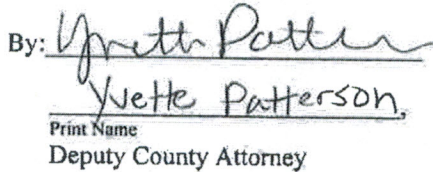 By: Yvette Patterson
Yvette Patterson,
Print Name
Deputy County Attorney